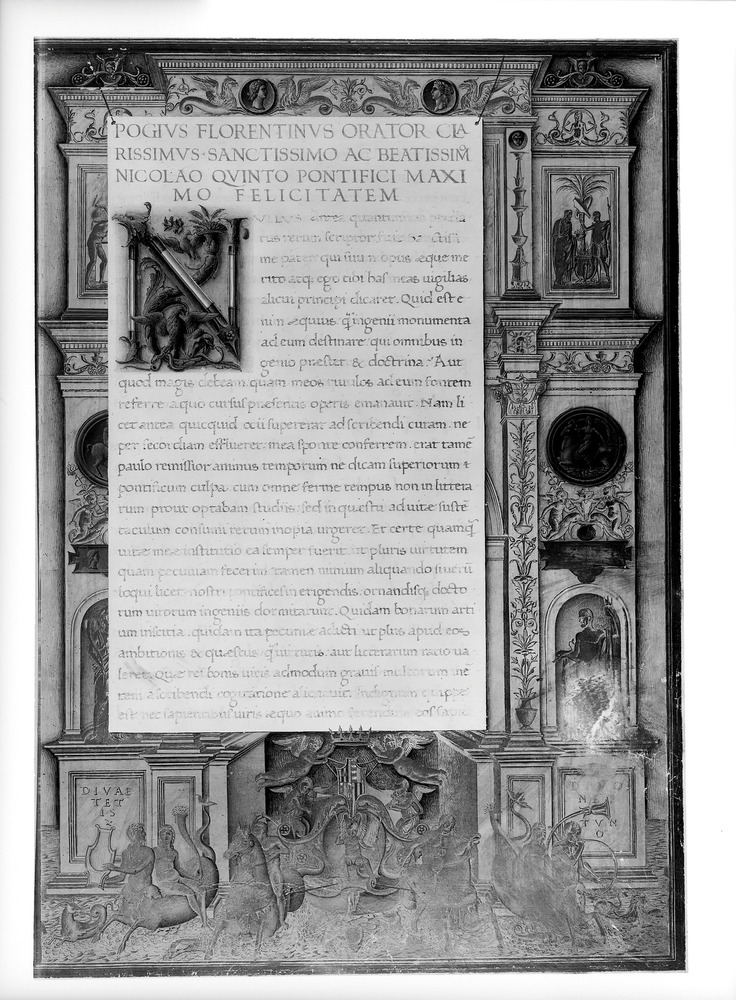 POGIVS FLORENTINVS ORATOR CLA
RISSIMVS·SANCTISSIMO AC BEATISSIM̄
NICOLAO QVINTO PONTIFICI MAXI
MO FELICITATEM
NVLLVS antea
me pater qui suum opus æque me
rito atq; ego tibi has meas uigilias
alicui principi dicaret. Quid est e
nim æquius q̄ ingenii monumenta
ad eum destinare qui omnibus in
genio præstet & doctrina? Aut
quod magis debeam quam meos riuulos ad eum fontem
referre a quo cursus præsentis operis emanauit. Nam li
cet antea quicquid ocii supererat ad scribendi curam. ne
per secordiam efflueret: mea sponte conferrem. erat tamē
paulo remissior animus temporum ne dicam superiorum &
pontificum culpa. cum omne ferme tempus non in littera
rum prout optabam studiis: sed in quæstu ad uitæ sustē
taculum consumi rerum inopia urgeret. Et certe quamq̄
uitæ meæ institutio ea semper fuerit. ut pluris uirtutem
quam pecuniam fecerim: tamen nimium aliquando
loqui licet nostri pontifices in erigendis. ornandisq; docto
rum uirorum ingeniis dormitarunt. Quidam bonarum arti
um inscitia. quidam ita pecuniæ adicti ut plus apud eos
ambitionis & quæstus q̄ uirtutis. aut litterarum ratio ua
leret. Quæ res bonis uiris admodum grauis multorum mē
tem a scribendi cogitatione Indignum quippe
est nec sapientibus uiris æquo animo ferendum eos
DIVAE
TET
IS
NE
TVN
O